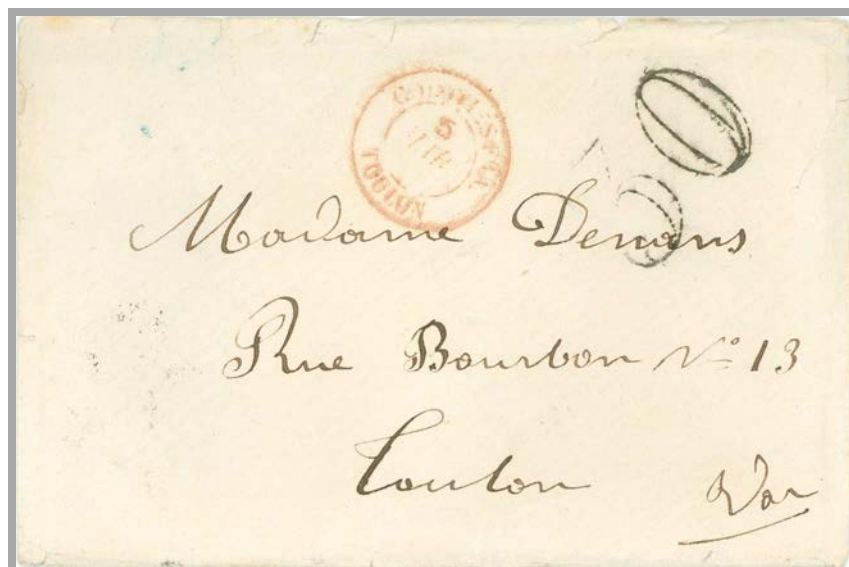 5
TOULON
Madame Denans
Rue Bourbon Nº 13
Toulon
Var